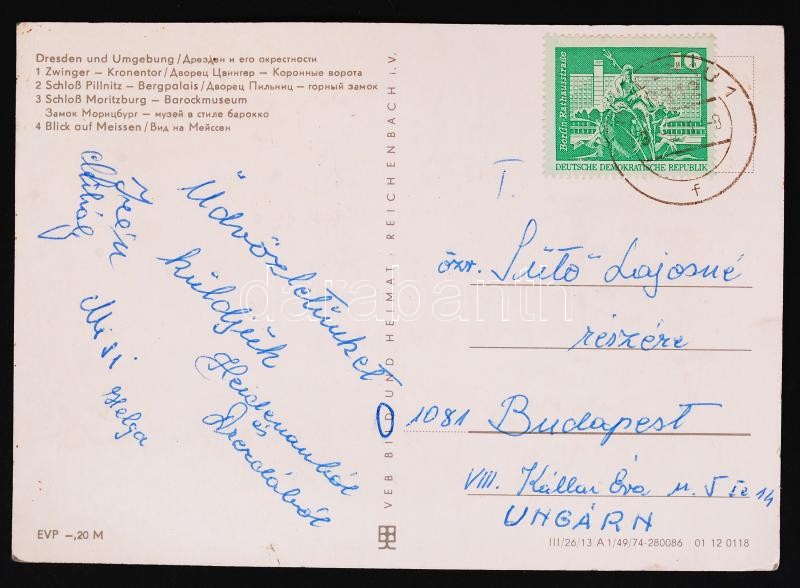 Dresden und Umgebung / Дрезден и его окрестности
1 Zwinger – Kronentor / Дворец Цвингер – Коронные ворота
2 Schloß Pillnitz – Bergpalais / Дворец Пильниц – горный замок
3 Schloß Moritzburg – Barockmuseum
Замок Морицбург – музей в стиле барокко
4 Blick auf Meissen / Вид на Мейссен
Üdvözletünket
küldjük
Heidenauból
és
Drezdából
Irén
Mihály
Misi
Helga
EVP –,20 M
VEB BILD UND HEIMAT · REICHENBACH i. V.
Berlin Rathausstraße
10
DEUTSCHE DEMOKRATISCHE REPUBLIK
f
T.
özv. Sütő Lajosné
részére
1081 Budapest
VIII. Kállai Éva u. 5 Ie 14
UNGÁRN
III/26/13 A 1/49/74-280086 01 12 0118
darabanth